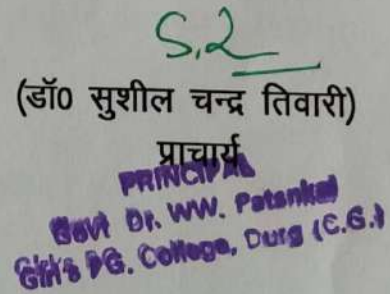 (डॉ0 सुशील चन्द्र तिवारी)
प्राचार्य
PRINCIPAL
Govt Dr. WW. Patankar
Girl's PG. College, Durg (C.G.)